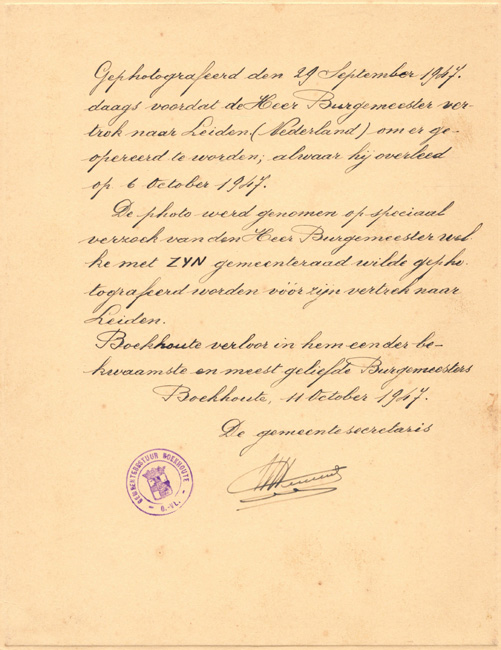 Gephotografeerd den 29 September 1947.
daags voordat de Heer Burgemeester ver-
trok naar Leiden (Nederland) om er ge-
opereerd te worden; alwaar hij overleed
op 6 October 1947.
De photo werd genomen op speciaal
verzoek van den Heer Burgemeester wel
ke met ZYN gemeenteraad wilde gepho-
tografeerd worden vóór zijn vertrek naar
Leiden.
Boekhoute verloor in hem een der be-
kwaamste en meest geliefde Burgemeesters
Boekhoute, 11 October 1947.
De gemeentesecretaris
GEMEENTEBESTUUR BOEKHOUTE
- O.-VL. -